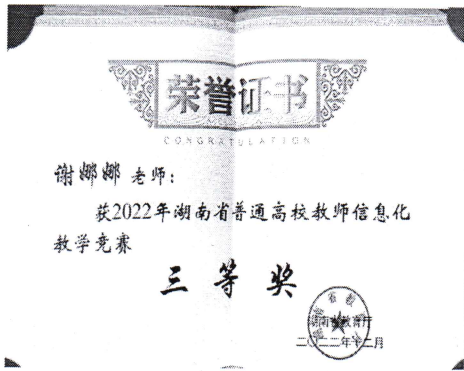 荣誉证书
CONGRATULATION
谢娜娜 老师:
获2022年湖南省普通高校教师信息化
教学竞赛
三等奖
湖南省教育厅
二〇二二年十二月